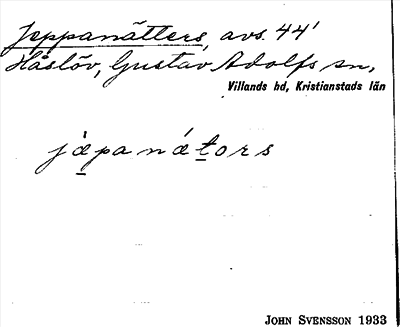 Jeppanätters, avs. 44'
Håslöv, Gustav Adolfs sn,
Villands hd, Kristianstads län
jäpanätors
JOHN SVENSSON 1933